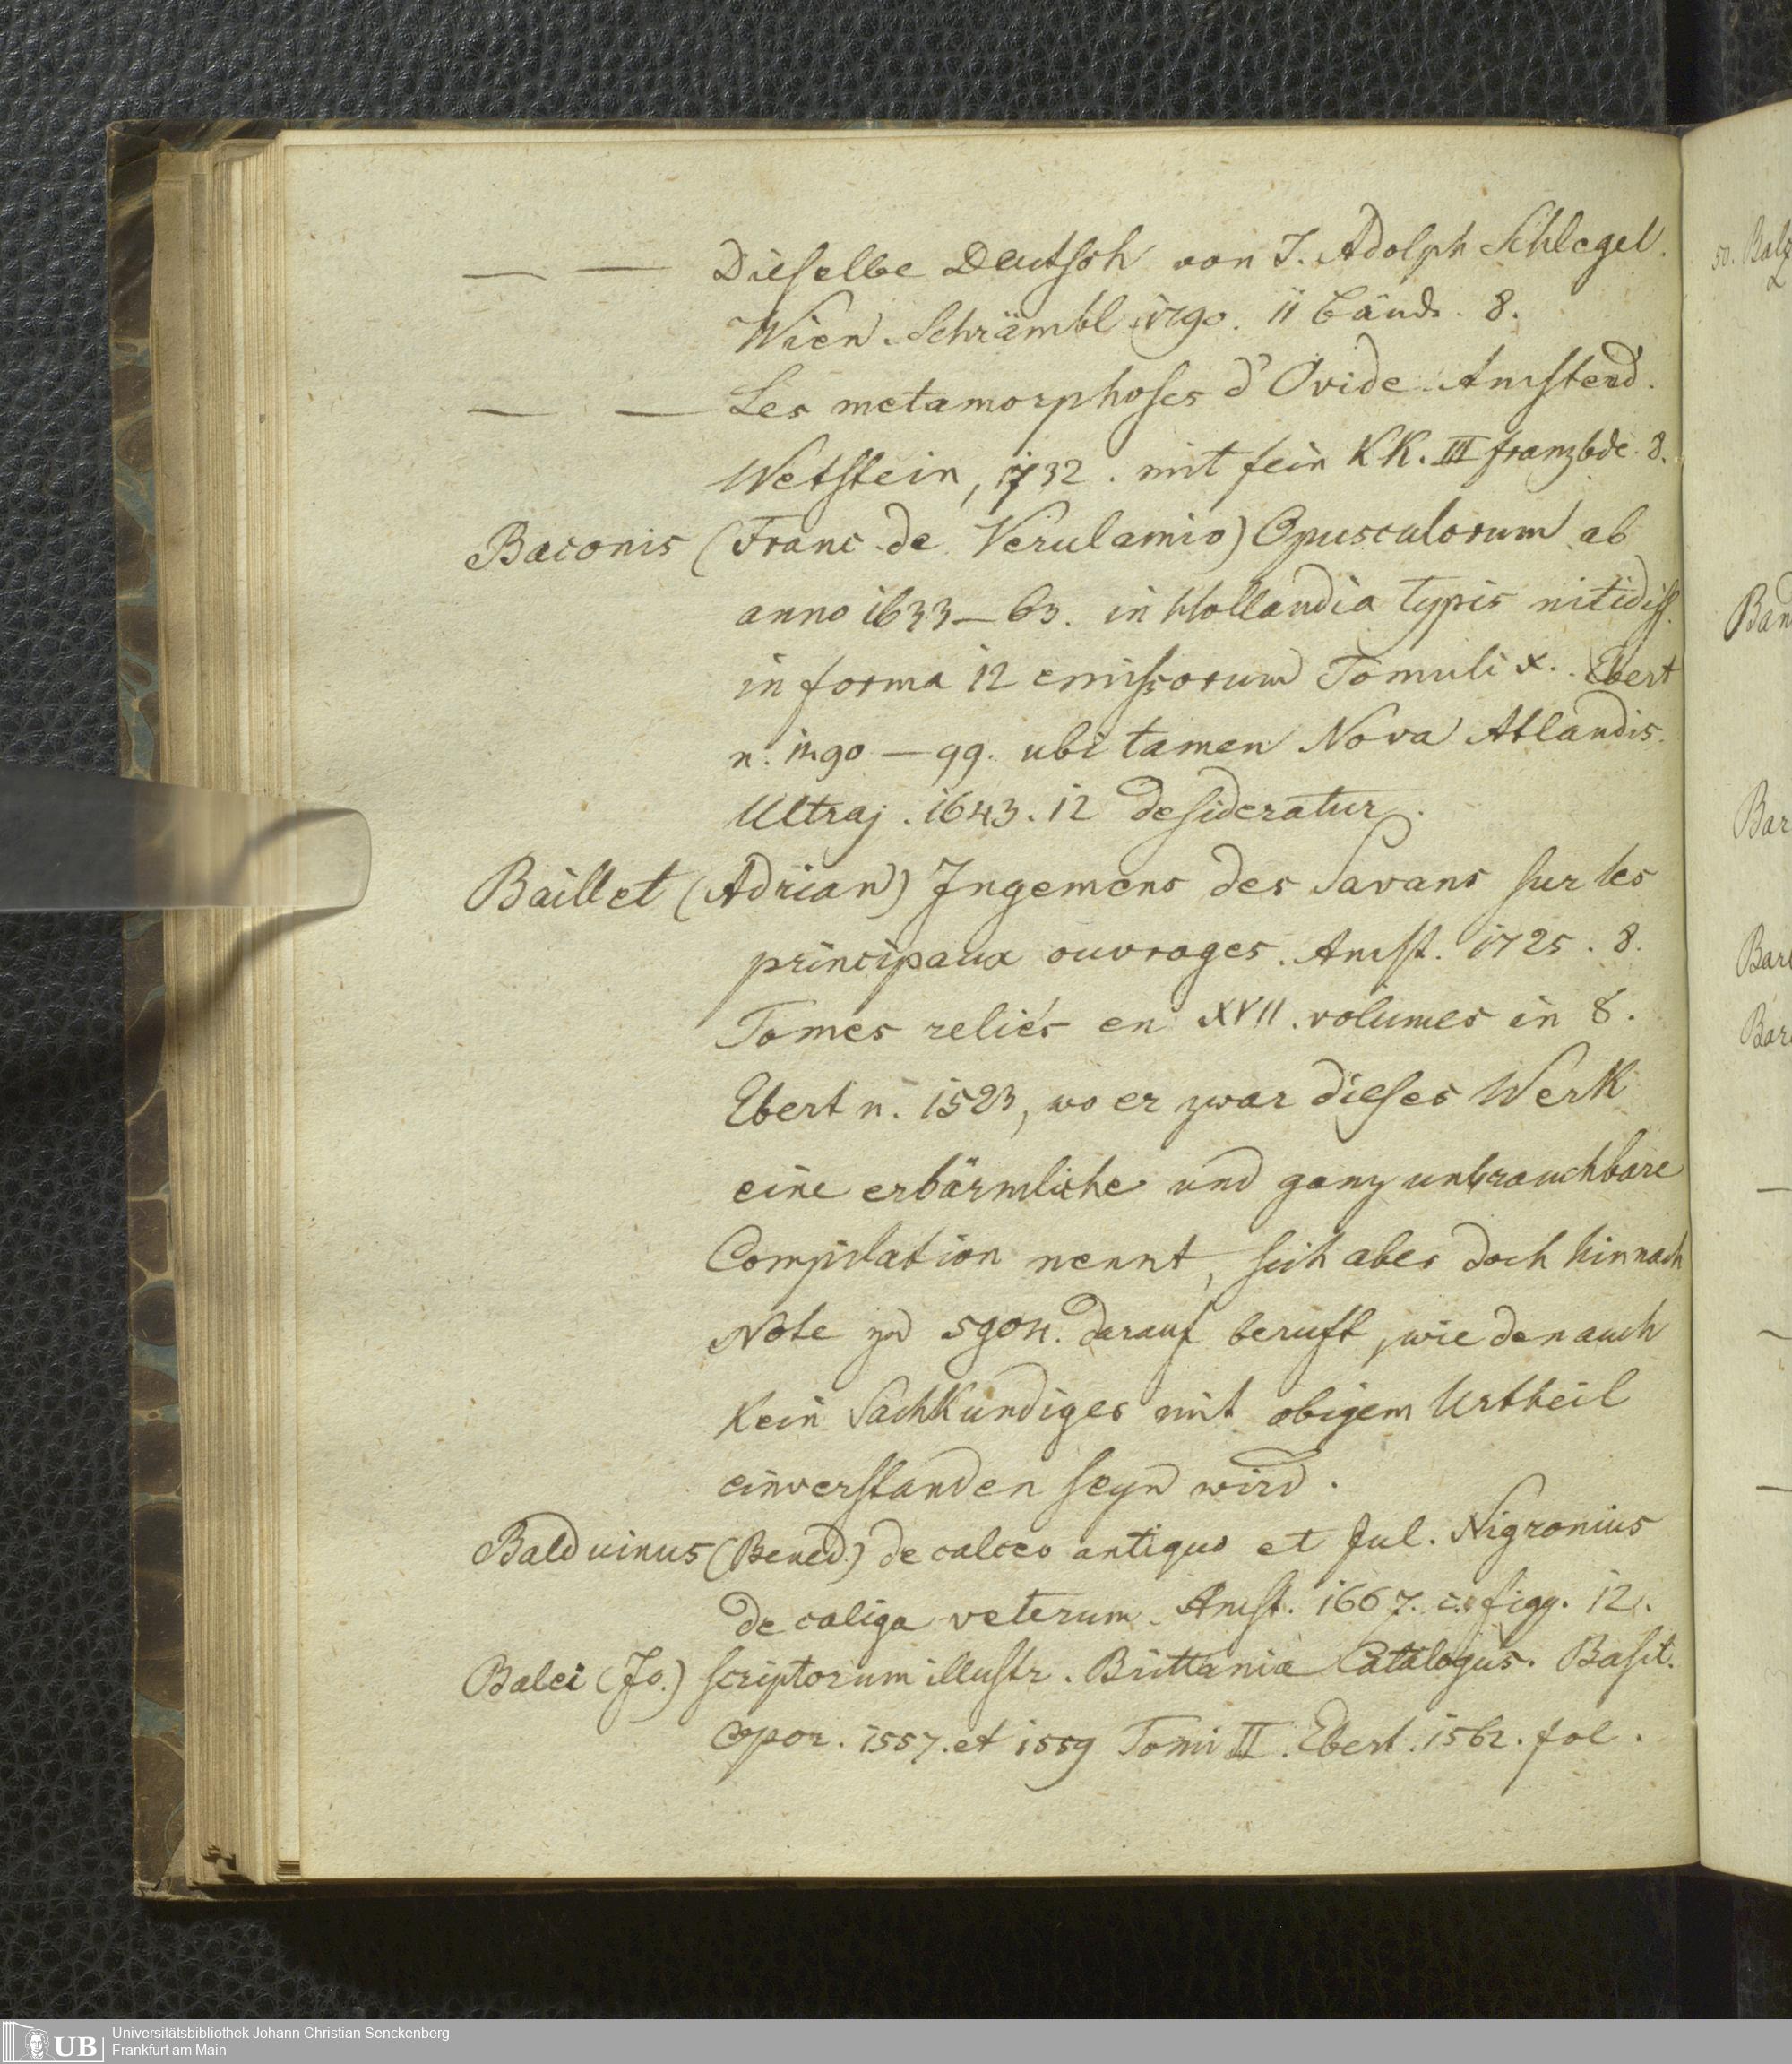 — — Dieselbe Deutsch von J. Adolph Schlegel.
Wien. Schrämbl 1790. II Bände. 8.
— — Les metamorphoses d'Ovide. Amsterd.
Wetstein, 1732. mit fein KK. III franzbde. 8.
Baconis (Franc. de Verulamio) Opusculorum ab
anno 1633—63. in Hollandia typis nitidiss.
in forma 12 emissorum Tomuli X. Ebert
n. 1490—99. ubi tamen Nova Atlandis.
Ultraj. 1643. 12 desideratur.
Baillet (Adrian) Jugemens des Savans sur les
principaux ouvrages. Amst. 1725. 8.
Tomes reliés en XVII. volumes in 8.
Ebert n. 1523, wo er zwar dieses Werk
eine erbärmliche und ganz unbrauchbare
Compilation nennt, sich aber doch hinnach
Note zu 5904. darauf beruft, wie den auch
kein Sachkundiger mit obigem Urtheil
einverstanden seyn wird.
Balduinus (Bened.) de calceo antiquo et Jul. Nigronius
de caliga veterum. Amst. 1667. c. figg. 12.
Balei (Jo.) scriptorum illustr. Brittania Catalogus. Basil.
Opor. 1557. et 1559 Tomi II. Ebert. 1562. fol.
50.
Ban
Bar
Bar
Bar
UB
Universitätsbibliothek Johann Christian Senckenberg
Frankfurt am Main